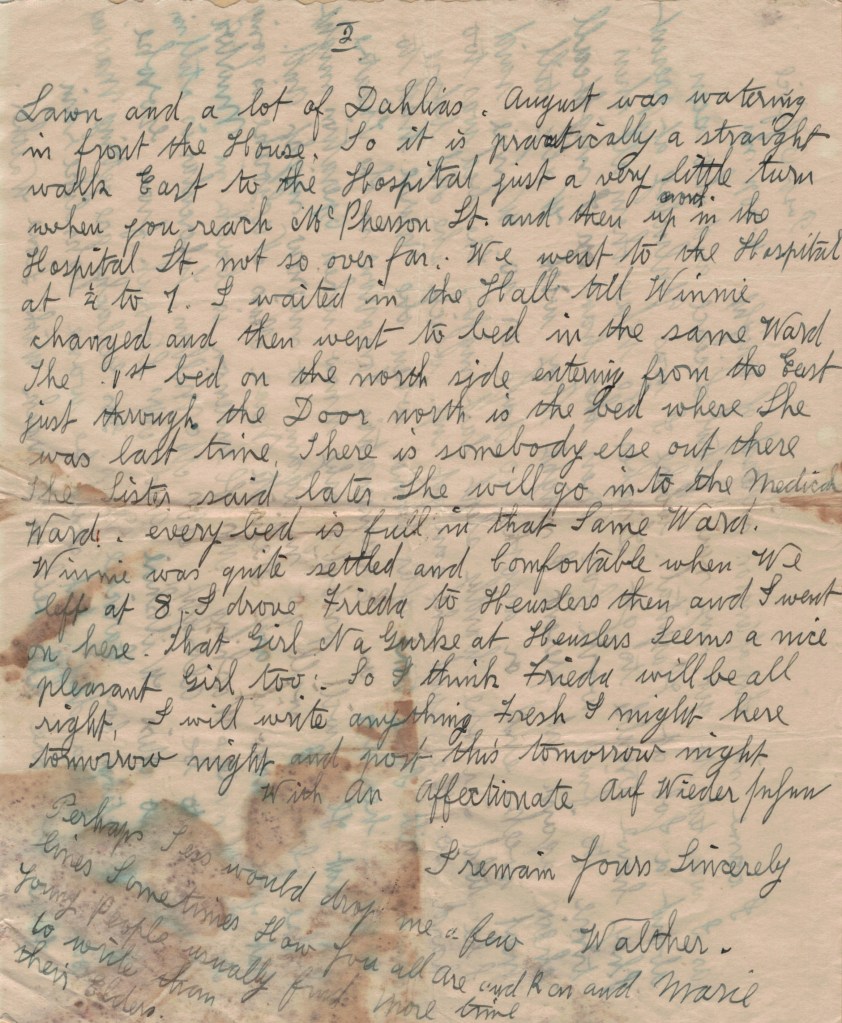 2
Lawn and a lot of Dahlias. August was watering
in front the House. So it is practically a straight
walk East to the Hospital just a very little turn
when you reach McPherson St. and then up and in the
Hospital St. not so over far. We went to the Hospital
at ¼ to 7. I waited in the Hall till Winnie
changed and then went to bed in the same Ward
The 1st bed on the north side entering from the East
just through the Door north is the bed where She
was last time. There is somebody else out there
The Sister said later She will go in to the Medical
Ward. every bed is full in that Same Ward.
Winnie was quite settled and Comfortable when We
left at 8. I drove Frieda to Heuslers then and I went
on here. That Girl Na Gurke at Heuslers Seems a nice
pleasant Girl too. So I think Frieda will be all
right. I will write anything Fresh I might here
tomorrow night and post this tomorrow night
With An Affectionate Auf Wiedersehen
I remain Yours Sincerely
Walther.
Perhaps would drop me a few
lines Sometimes How You all are and Ron and Marie
Young People usually find more time
to write than
their Elders.